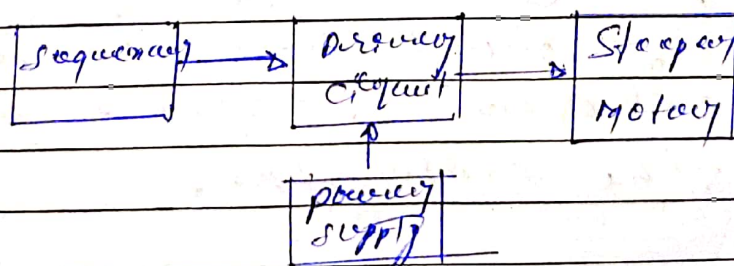 Sequencer
Driver
Circuit
Stepper
Motor
power
supply